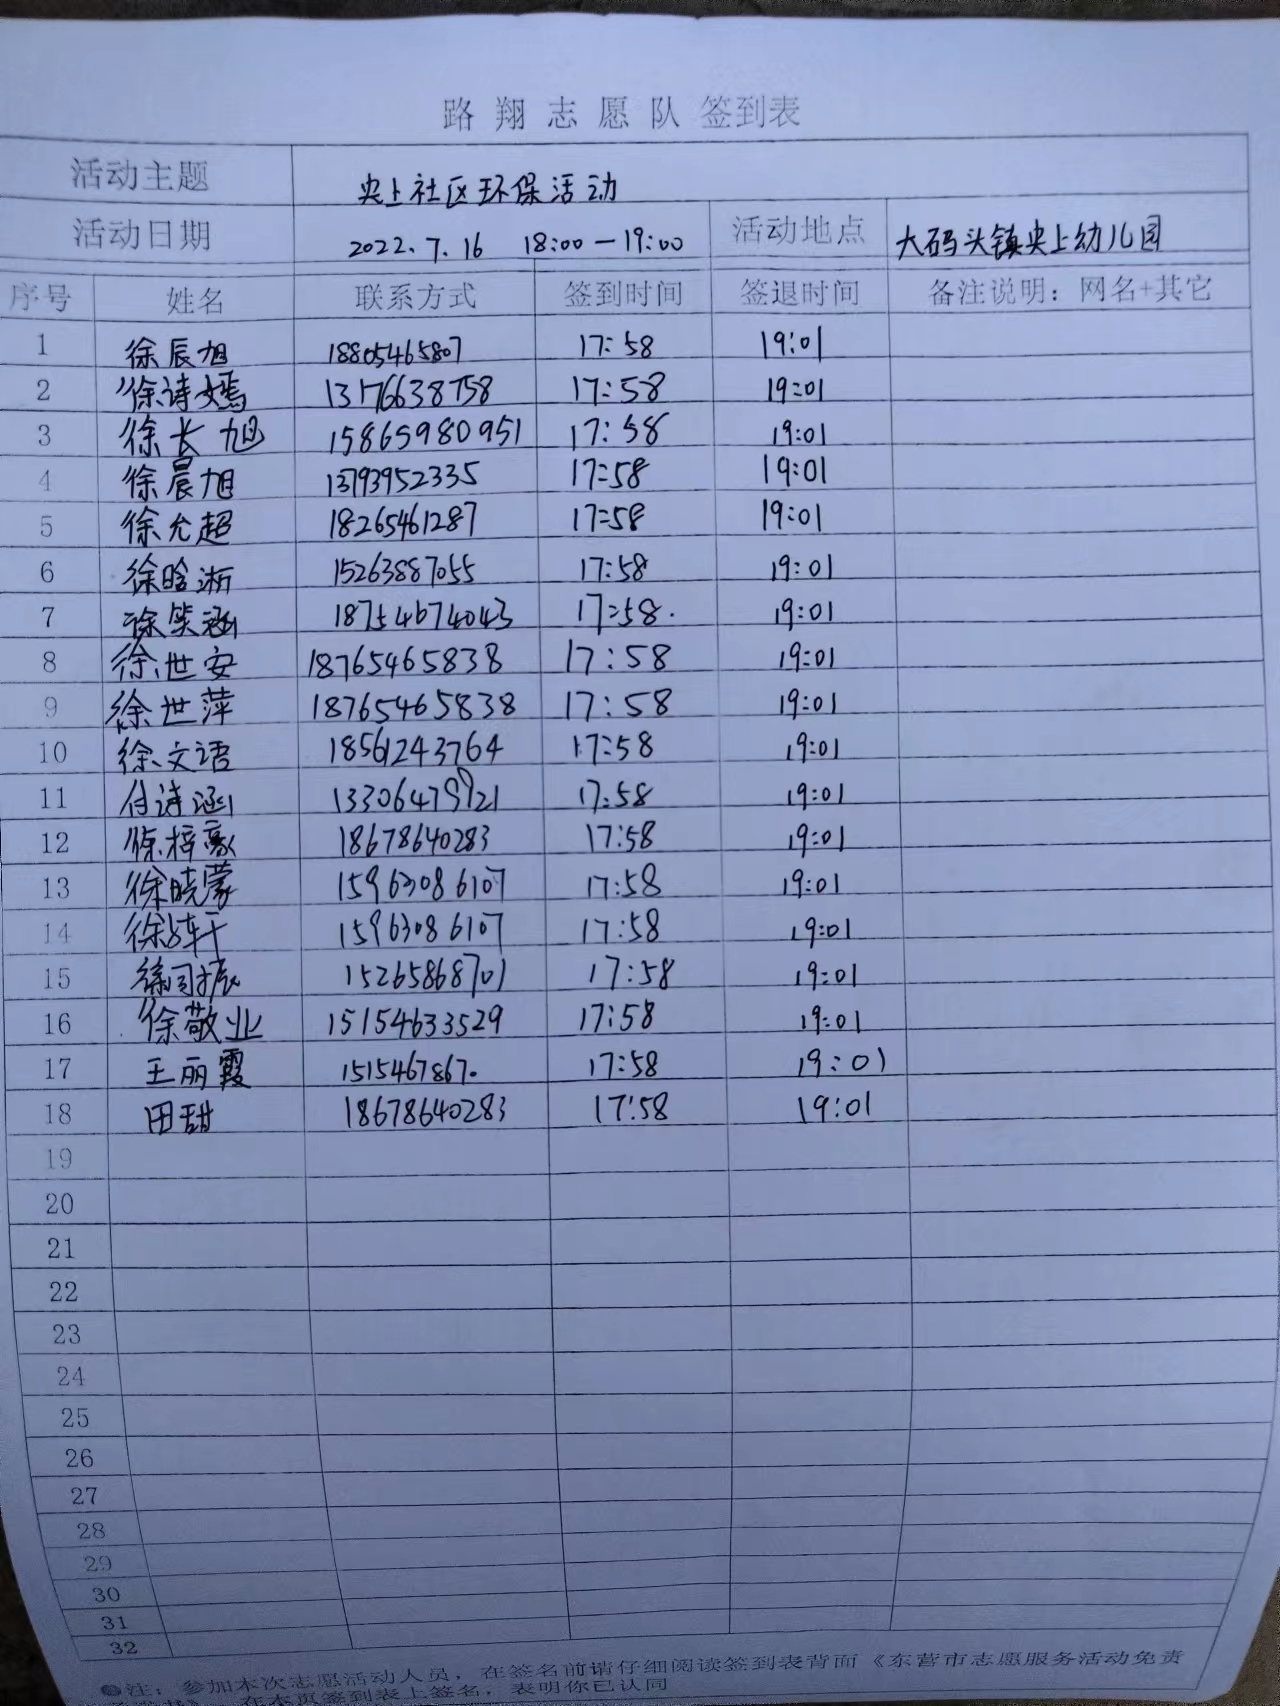 路翔志愿队签到表
活动主题 央上社区环保活动
活动日期 2022.7.16 18:00—19:00 活动地点 大码头镇央上幼儿园
序号 姓名 联系方式 签到时间 签退时间 备注说明：网名+其它
1 徐辰旭 18805465807 17:58 19:01
2 徐诗嫣 13176638758 17:58 19:01
3 徐长旭 15865980951 17:58 19:01
4 徐晨旭 13793952335 17:58 19:01
5 徐允超 18265461287 17:58 19:01
6 徐晗淅 15263887055 17:58 19:01
7 徐笑涵 18754674043 17:58. 19:01
8 徐世安 18765465838 17:58 19:01
9 徐世萍 18765465838 17:58 19:01
10 徐文语 18561243764 17:58 19:01
11 付诗涵 17:58 19:01
12 徐梓豪 18678640283 17:58 19:01
13 徐晓蒙 15963086107 17:58 19:01
14 15963086107 17:58 19:01
15 15265868701 17:58 19:01
16 徐敬业 15154633529 17:58 19:01
17 王丽霞 1515467867. 17:58 19:01
18 田甜 18678640283 17:58 19:01
19
20
21
22
23
24
25
26
27
28
29
30
31
32
●注：参加本次志愿活动人员，在签名前请仔细阅读签到表背面《东营市志愿服务活动免责
在本页签到表上签名，表明你已认同